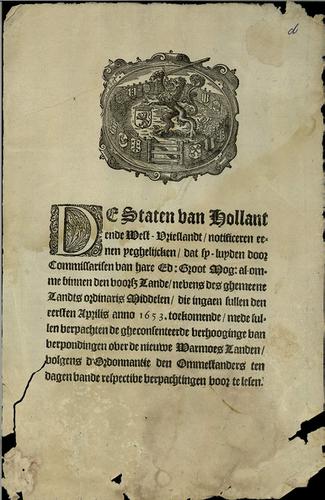 d
DE Staten van Hollant
ende West-Vrieslandt / notificeren ee-
nen yeghelijcken / dat sy-luyden door
Commissarisen van hare Ed: Groot Mog: al-om-
me binnen den voorsz Lande / nevens des ghemeene
Landts ordinaris Middelen / die ingaen sullen den
eersten Aprilis anno 1653. toekomende / mede sul-
len verpachten de gheconsenteerde verhooginge van
verpondingen over de nieuwe Warmoes Landen /
volgens d'Ordonnantie den Ommestanders ten
dagen vande respective verpachtingen voor te lesen.